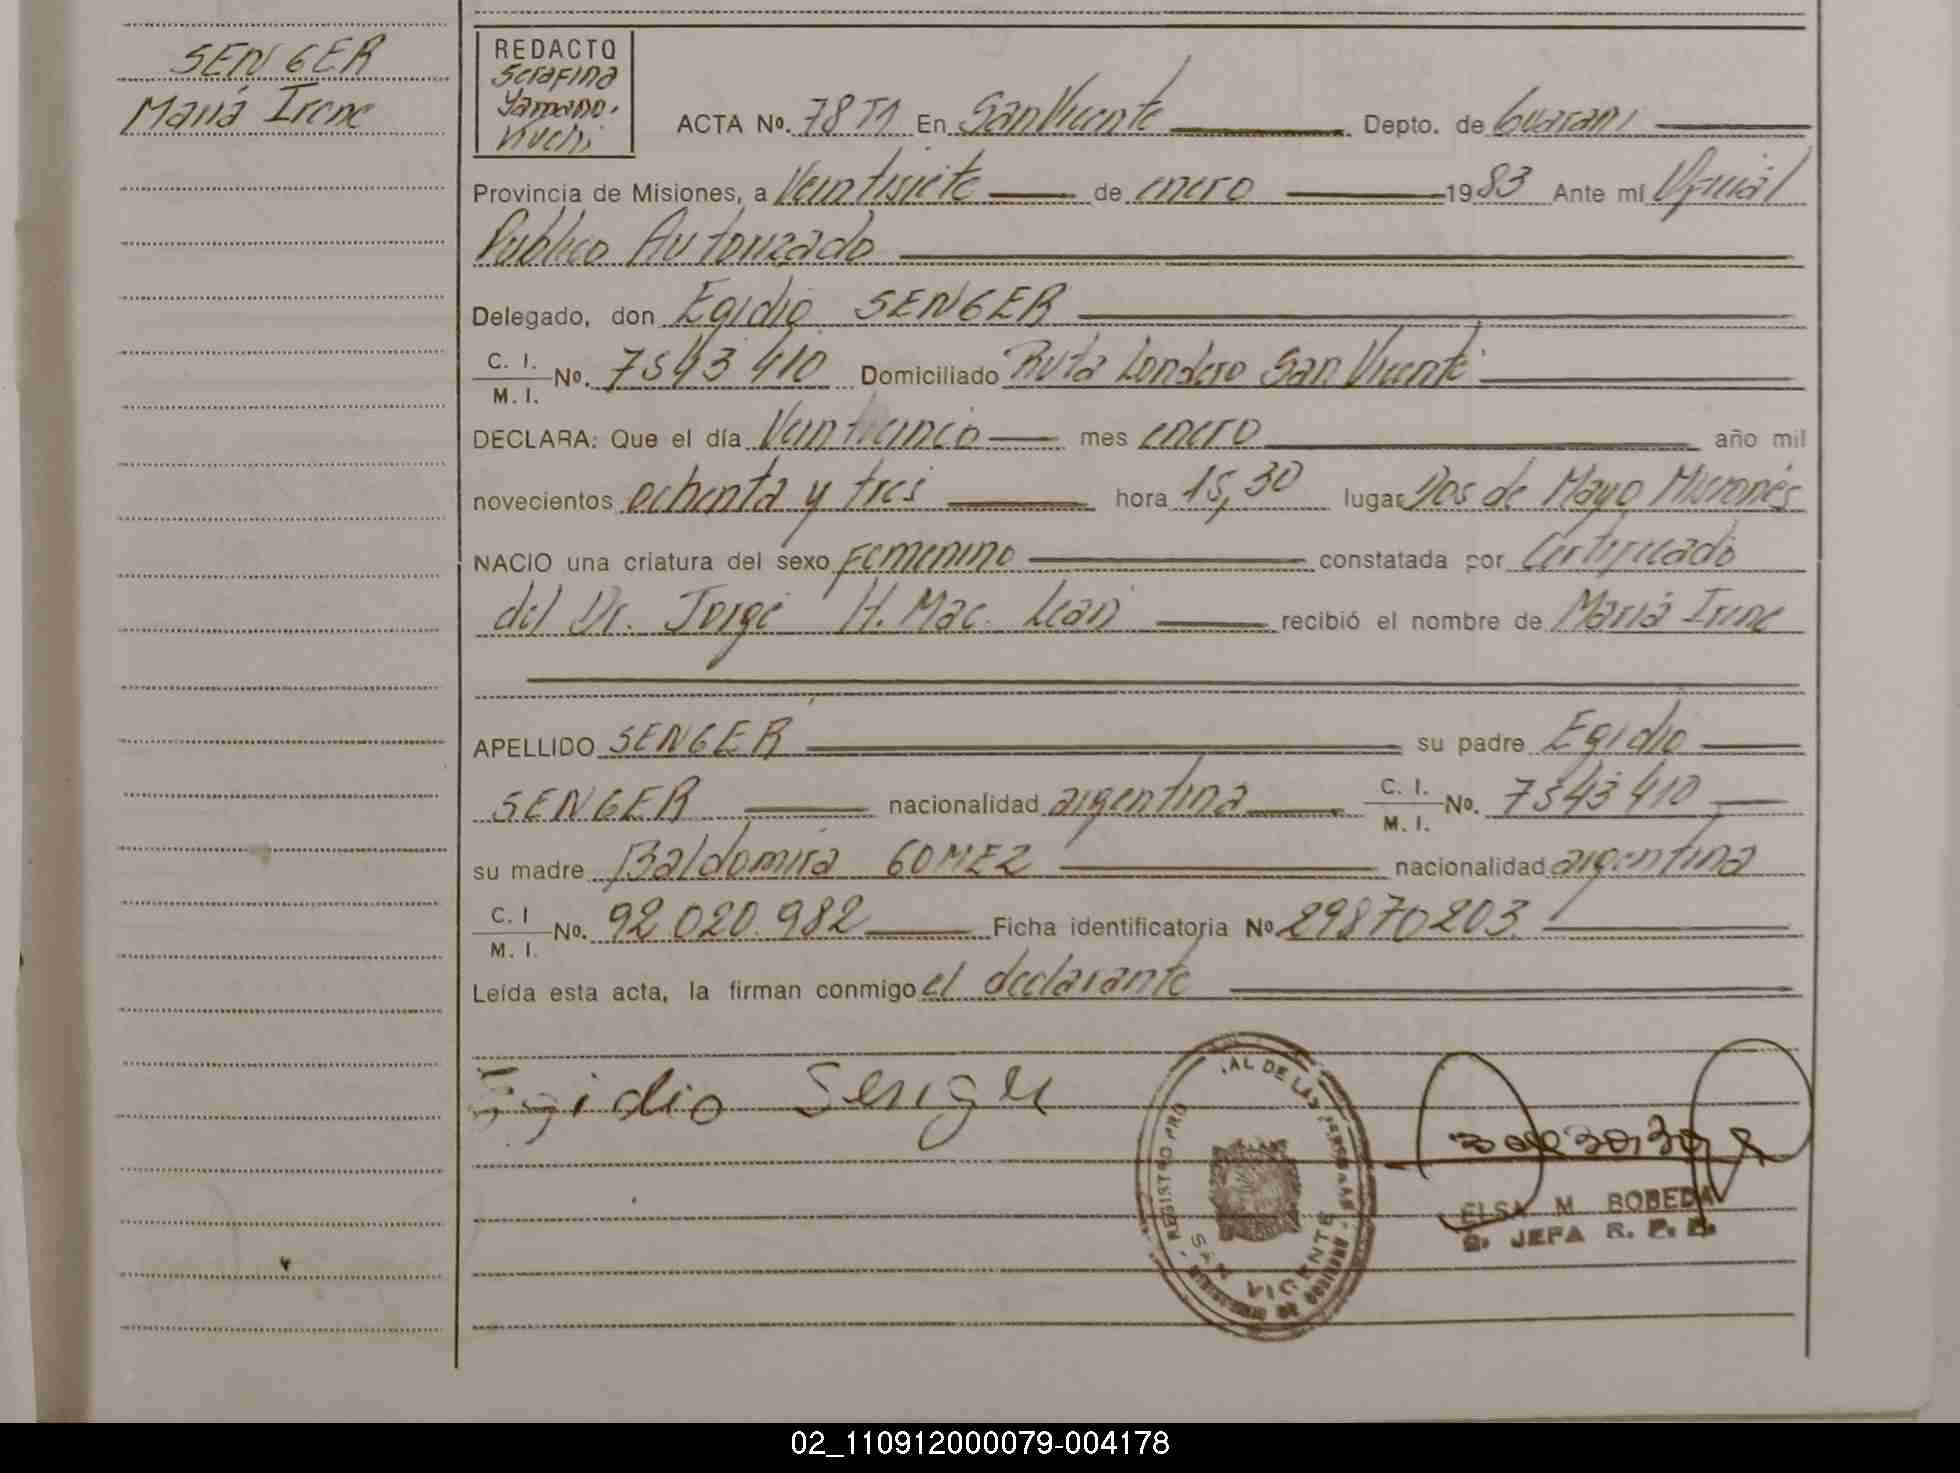 SENGER
María Irene
REDACTO
Serafina
Yamano.
Kuchi
ACTA No. 78 T1 En San Vicente Depto. de Guaraní
Provincia de Misiones, a Veintisiete de enero 1983 Ante mí Oficial
Público Autorizado
Delegado, don Egidio SENGER
C. I. / M. I. No. 7543410 Domiciliado Ruta Londero San Vicente
DECLARA: Que el día Veinticinco mes enero año mil
novecientos ochenta y tres hora 15,30 lugar Dos de Mayo Misiones
NACIO una criatura del sexo Femenino constatada por Certificado
del Dr. Jorge H. Mac. Lean recibió el nombre de María Irene
APELLIDO SENGER su padre Egidio
SENGER nacionalidad argentina C. I. / M. I. No. 7543410
su madre Baldomira GOMEZ nacionalidad argentina
C. I / M. I. No. 92.020.982 Ficha identificatoria No 29870203
Leída esta acta, la firman conmigo el declarante
Egidio Senger
REGISTRO PRO
AL DE LAS PERSONAS
SAN VICENTE
ELSA M BOBEDA
JEFA R. P. P.
02_110912000079-004178